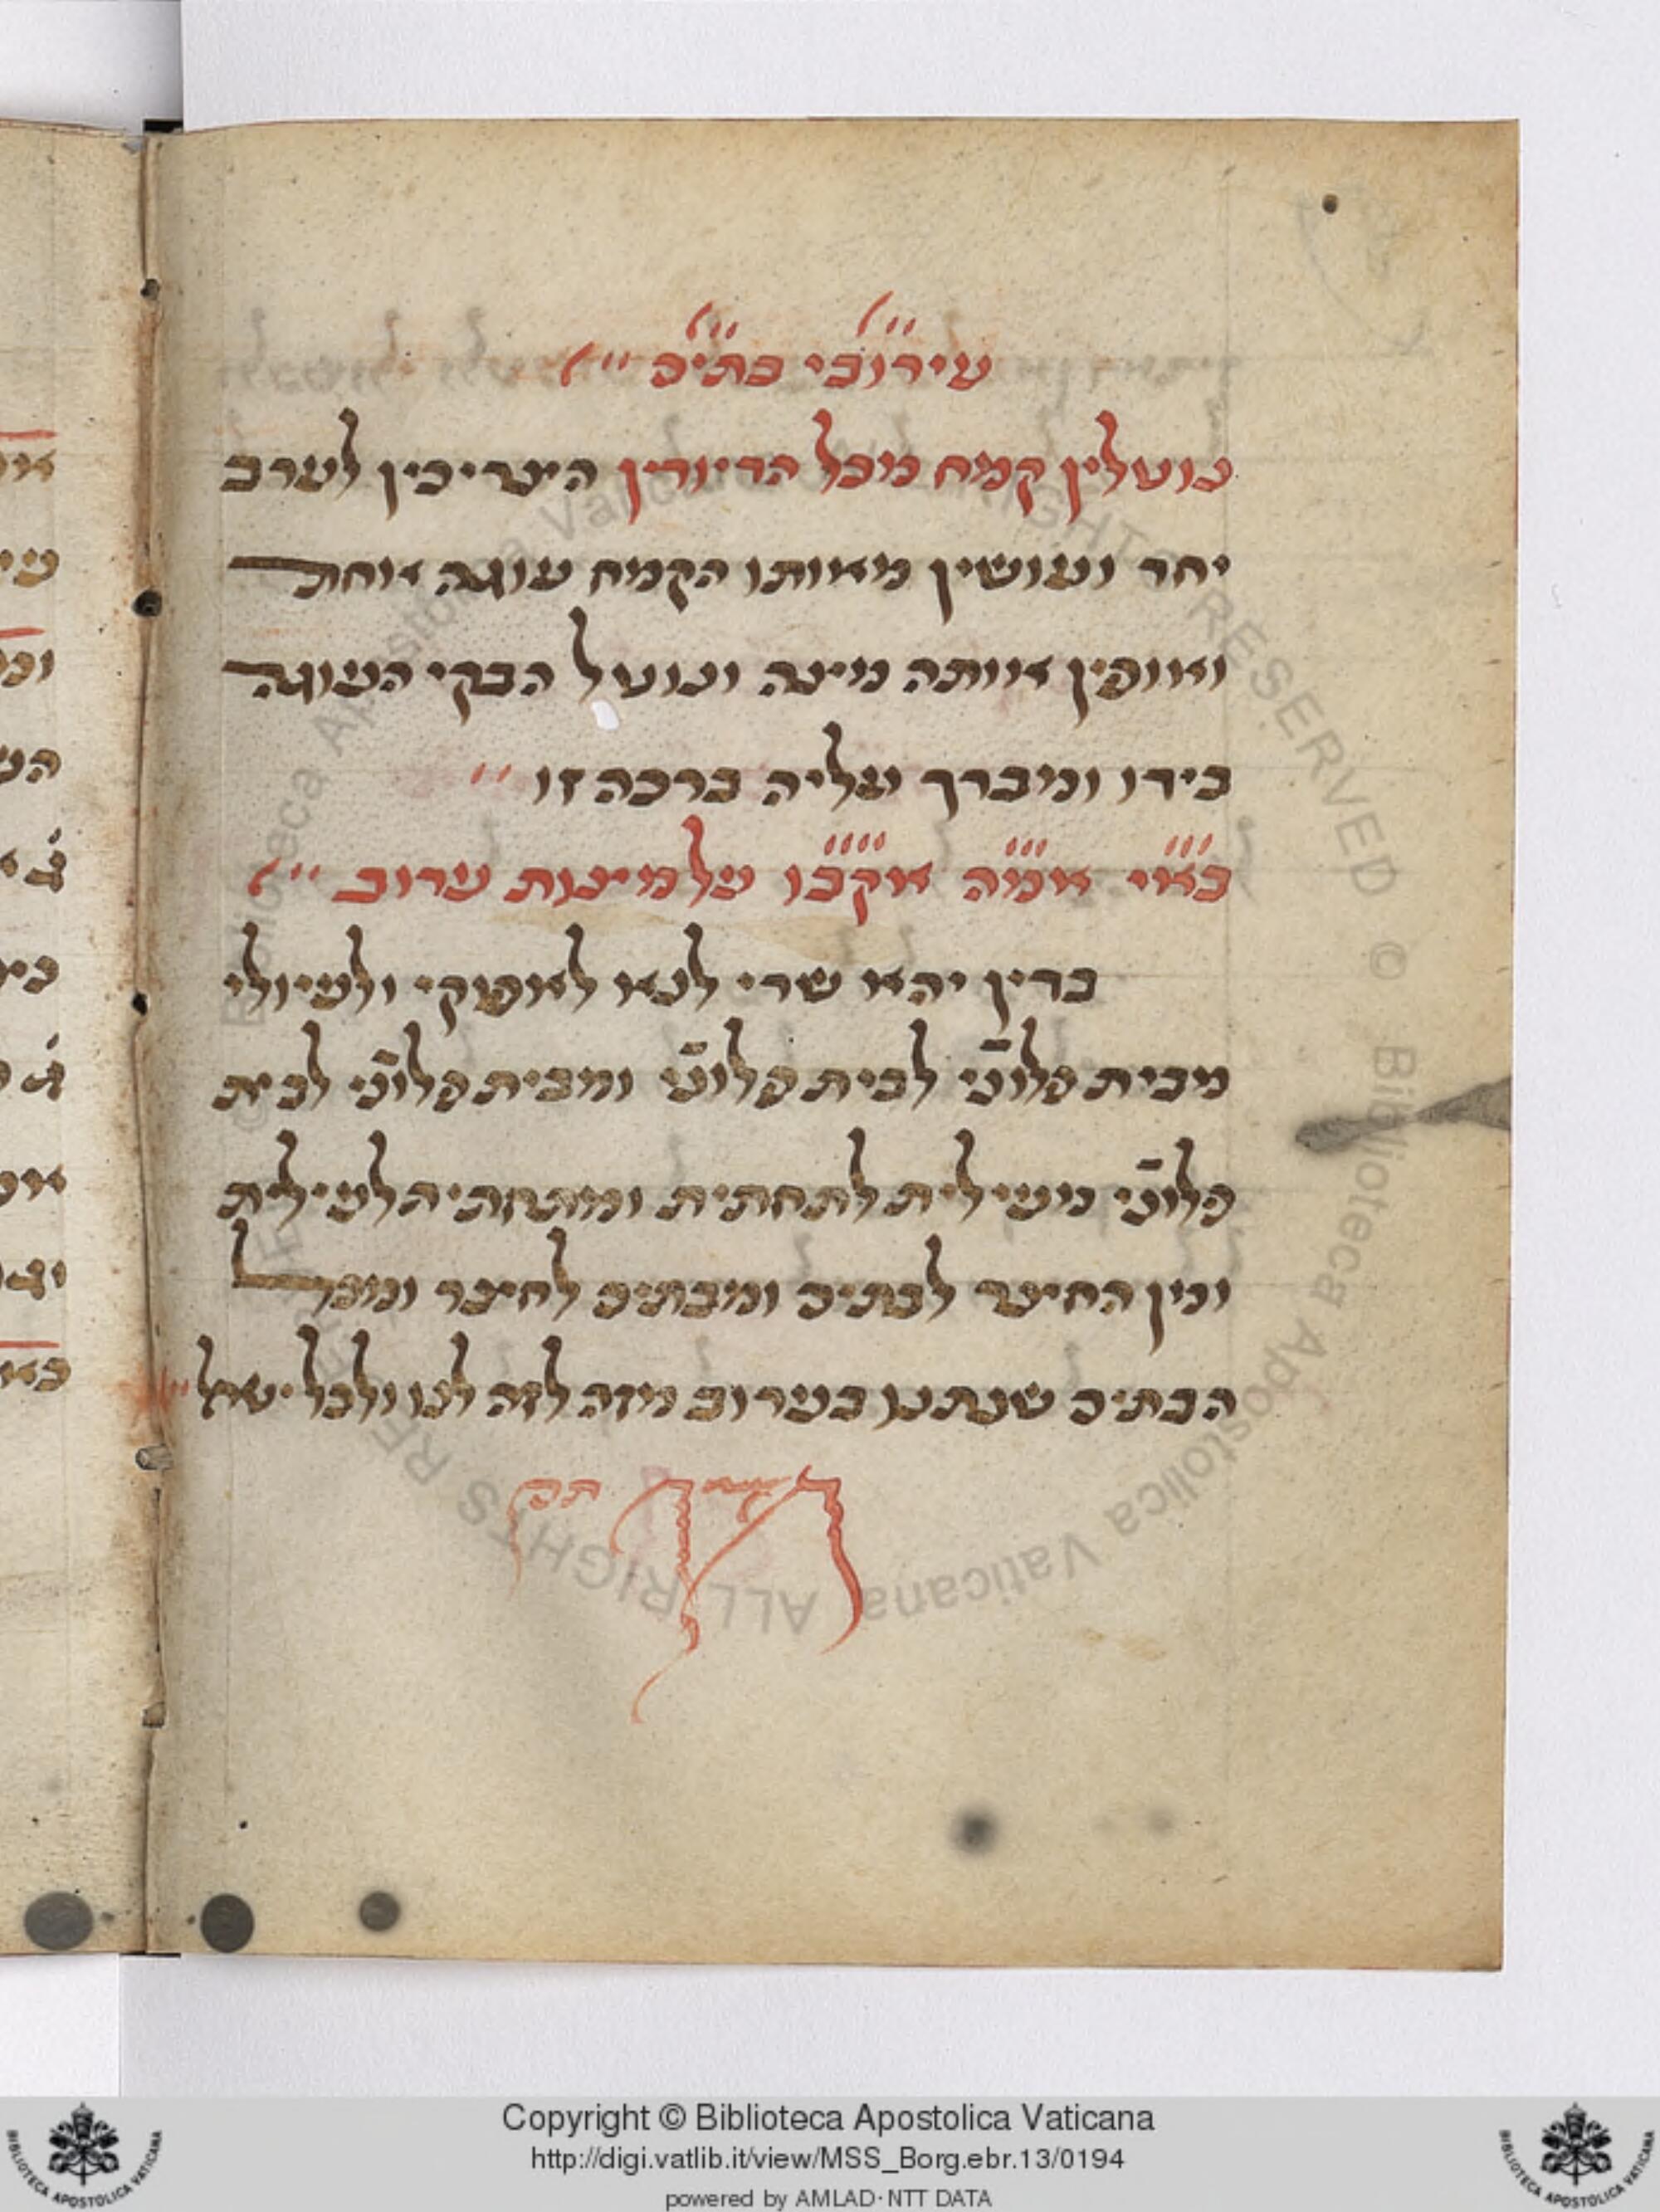 עירובי בתים
נוטלין קמח מכל הדיורין הצריכין לערב
יחד ועושין מאותו הקמח עוגה אחת
ואופין אותה מצה ונוטל הבקי העוגה
בידו ומברך עליה ברכה זו
באי אמה אקבו על מצות ערוב
בדין יהא שרי לנא לאפוקי ולעיולי
מבית פלוני לבית פלוני ומבית פלוני לבית
פלוני מעילית לתחתית ומתחתי הלעילית
ומן החצר לבתים ומבתים לחצר ומכל
הבתים שנתנו בערוב מזה לזה לנו ולכל ישראל
Copyright © Biblioteca Apostolica Vaticana
http://digi.vatlib.it/view/MSS_Borg.ebr.13/0194
powered by AMLAD·NTT DATA